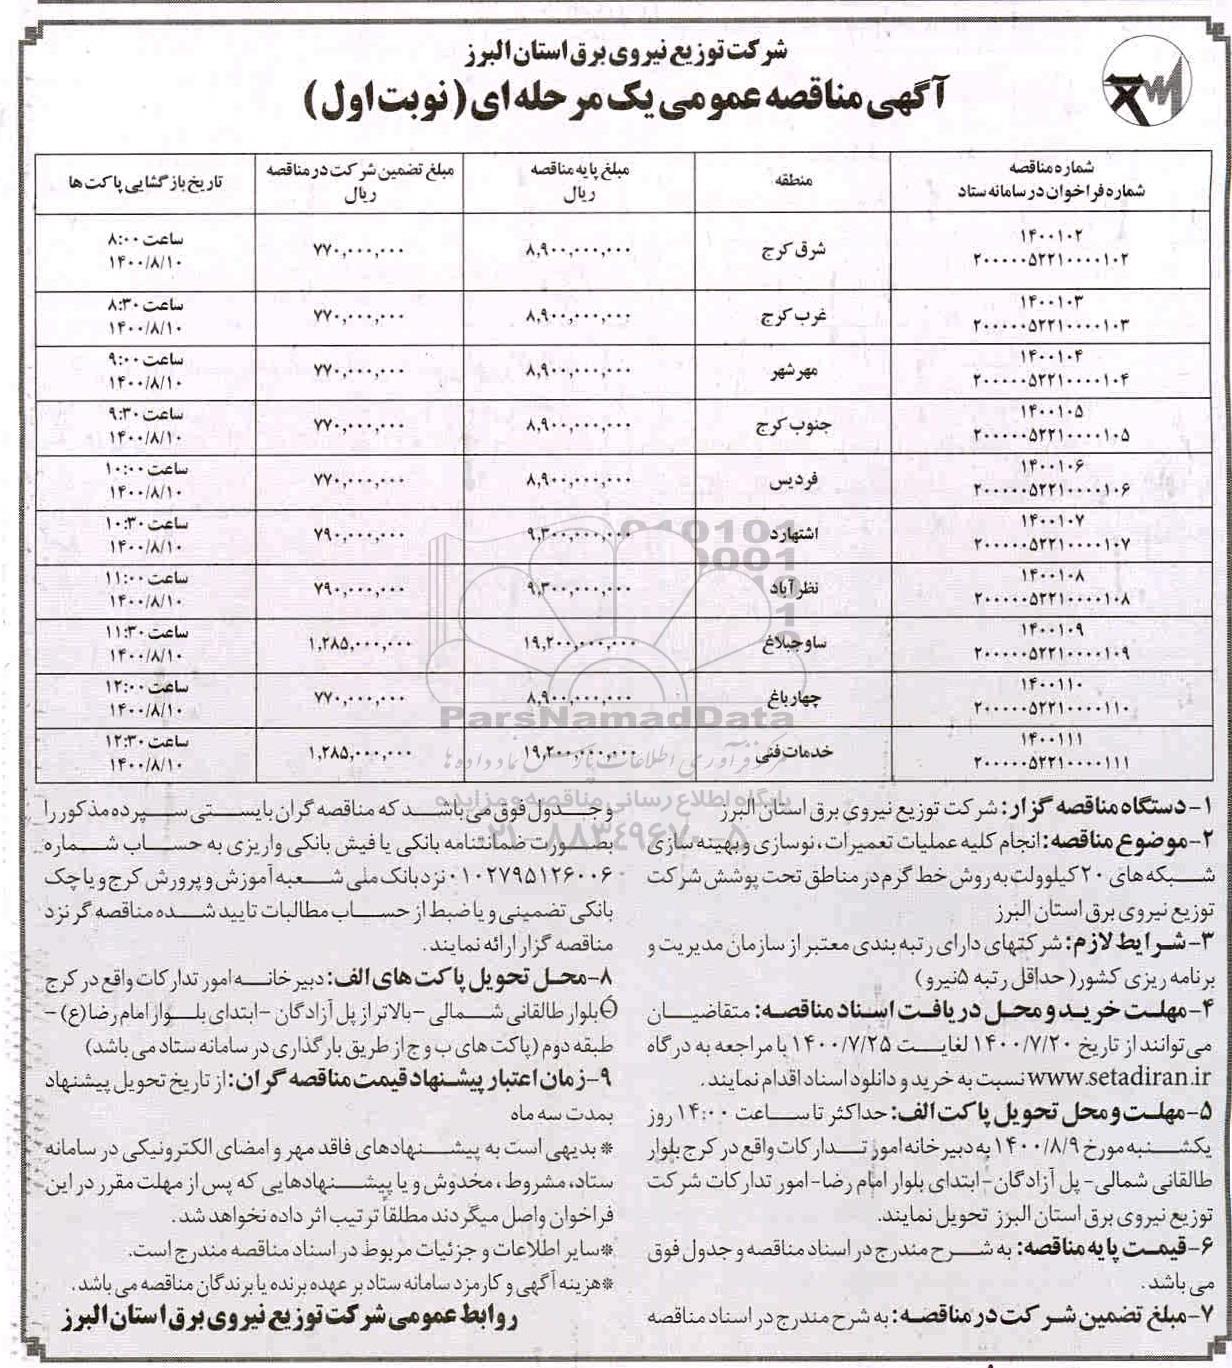 شرکت توزیع نیروی برق استان البرز
آگهی مناقصه عمومی یک مرحله ای (نوبت اول)
شماره مناقصه
شماره فراخوان در سامانه ستاد
منطقه
مبلغ پایه مناقصه
ریال
مبلغ تضمین شرکت در مناقصه
ریال
تاریخ بازگشایی پاکت ها
۱۴۰۰۱۰۲
۲۰۰۰۰۰۵۲۲۱۰۰۰۰۱۰۲
شرق کرج
۸,۹۰۰,۰۰۰,۰۰۰
۷۷۰,۰۰۰,۰۰۰
ساعت ۸:۰۰
۱۴۰۰/۸/۱۰
۱۴۰۰۱۰۳
۲۰۰۰۰۰۵۲۲۱۰۰۰۰۱۰۳
غرب کرج
۸,۹۰۰,۰۰۰,۰۰۰
۷۷۰,۰۰۰,۰۰۰
ساعت ۸:۳۰
۱۴۰۰/۸/۱۰
۱۴۰۰۱۰۴
۲۰۰۰۰۰۵۲۲۱۰۰۰۰۱۰۴
مهرشهر
۸,۹۰۰,۰۰۰,۰۰۰
۷۷۰,۰۰۰,۰۰۰
ساعت ۹:۰۰
۱۴۰۰/۸/۱۰
۱۴۰۰۱۰۵
۲۰۰۰۰۰۵۲۲۱۰۰۰۰۱۰۵
جنوب کرج
۸,۹۰۰,۰۰۰,۰۰۰
۷۷۰,۰۰۰,۰۰۰
ساعت ۹:۳۰
۱۴۰۰/۸/۱۰
۱۴۰۰۱۰۶
۲۰۰۰۰۰۵۲۲۱۰۰۰۰۱۰۶
فردیس
۸,۹۰۰,۰۰۰,۰۰۰
۷۷۰,۰۰۰,۰۰۰
ساعت ۱۰:۰۰
۱۴۰۰/۸/۱۰
۱۴۰۰۱۰۷
۲۰۰۰۰۰۵۲۲۱۰۰۰۰۱۰۷
اشتهارد
۹,۳۰۰,۰۰۰,۰۰۰
۷۹۰,۰۰۰,۰۰۰
ساعت ۱۰:۳۰
۱۴۰۰/۸/۱۰
۱۴۰۰۱۰۸
۲۰۰۰۰۰۵۲۲۱۰۰۰۰۱۰۸
نظرآباد
۹,۳۰۰,۰۰۰,۰۰۰
۷۹۰,۰۰۰,۰۰۰
ساعت ۱۱:۰۰
۱۴۰۰/۸/۱۰
۱۴۰۰۱۰۹
۲۰۰۰۰۰۵۲۲۱۰۰۰۰۱۰۹
ساوجبلاغ
۱۹,۲۰۰,۰۰۰,۰۰۰
۱,۲۸۵,۰۰۰,۰۰۰
ساعت ۱۱:۳۰
۱۴۰۰/۸/۱۰
۱۴۰۰۱۱۰
۲۰۰۰۰۰۵۲۲۱۰۰۰۰۱۱۰
چهارباغ
۸,۹۰۰,۰۰۰,۰۰۰
۷۷۰,۰۰۰,۰۰۰
ساعت ۱۲:۰۰
۱۴۰۰/۸/۱۰
۱۴۰۰۱۱۱
۲۰۰۰۰۰۵۲۲۱۰۰۰۰۱۱۱
خدمات فنی
۱۹,۲۰۰,۰۰۰,۰۰۰
۱,۲۸۵,۰۰۰,۰۰۰
ساعت ۱۲:۳۰
۱۴۰۰/۸/۱۰
ParsNamadData
مرکز فرآوری اطلاعات پارس نماد داده ها
پایگاه اطلاع رسانی مناقصه و مزایده
۰۲۱-۸۸۳۴۹۶۷۰-۵
۱- دستگاه مناقصه گزار: شرکت توزیع نیروی برق استان البرز
۲- موضوع مناقصه: انجام کلیه عملیات تعمیرات، نوسازی و بهینه سازی
شبکه های ۲۰ کیلوولت به روش خط گرم در مناطق تحت پوشش شرکت
توزیع نیروی برق استان البرز
۳- شرایط لازم: شرکتهای دارای رتبه بندی معتبر از سازمان مدیریت و
برنامه ریزی کشور (حداقل رتبه ۵ نیرو)
۴- مهلت خرید و محل دریافت اسناد مناقصه: متقاضیان
می توانند از تاریخ ۱۴۰۰/۷/۲۰ لغایت ۱۴۰۰/۷/۲۵ با مراجعه به درگاه
www.setadiran.ir نسبت به خرید و دانلود اسناد اقدام نمایند.
۵- مهلت و محل تحویل پاکت الف: حداکثر تا ساعت ۱۴:۰۰ روز
یکشنبه مورخ ۱۴۰۰/۸/۹ به دبیرخانه امور تدارکات واقع در کرج بلوار
طالقانی شمالی - پل آزادگان - ابتدای بلوار امام رضا - امور تدارکات شرکت
توزیع نیروی برق استان البرز تحویل نمایند.
۶- قیمت پایه مناقصه: به شرح مندرج در اسناد مناقصه و جدول فوق
می باشد.
۷- مبلغ تضمین شرکت در مناقصه: به شرح مندرج در اسناد مناقصه
و جدول فوق می باشد که مناقصه گران بایستی سپرده مذکور را
بصورت ضمانتنامه بانکی یا فیش بانکی واریزی به حساب شماره
۰۱۰۲۷۹۵۱۲۶۰۰۶ نزد بانک ملی شعبه آموزش و پرورش کرج و یا چک
بانکی تضمینی و یا ضبط از حساب مطالبات تایید شده مناقصه گر نزد
مناقصه گزار ارائه نمایند.
۸- محل تحویل پاکت های الف: دبیرخانه امور تدارکات واقع در کرج
بلوار طالقانی شمالی - بالاتر از پل آزادگان - ابتدای بلوار امام رضا (ع) -
طبقه دوم (پاکت های ب و ج از طریق بارگذاری در سامانه ستاد می باشد)
۹- زمان اعتبار پیشنهاد قیمت مناقصه گران: از تاریخ تحویل پیشنهاد
بمدت سه ماه
* بدیهی است به پیشنهادهای فاقد مهر و امضای الکترونیکی در سامانه
ستاد، مشروط، مخدوش و یا پیشنهادهایی که پس از مهلت مقرر در این
فراخوان واصل میگردند مطلقاً ترتیب اثر داده نخواهد شد.
* سایر اطلاعات و جزئیات مربوط در اسناد مناقصه مندرج است.
* هزینه آگهی و کارمزد سامانه ستاد بر عهده برنده یا برندگان مناقصه می باشد.
روابط عمومی شرکت توزیع نیروی برق استان البرز